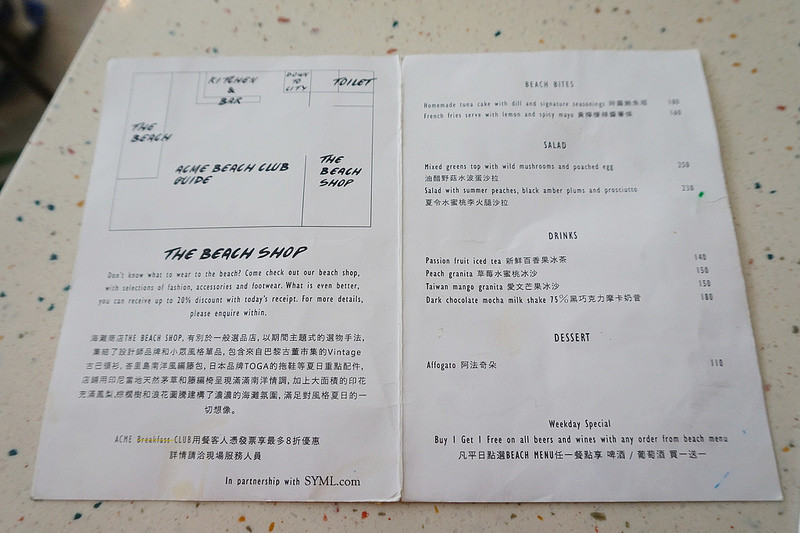 KITCHEN
&
BAR
DOWN
TO
CITY
TOILET
THE
BEACH
ACME BEACH CLUB
GUIDE
THE
BEACH
SHOP
THE BEACH SHOP
Don't know what to wear to the beach? Come check out our beach shop,
with selections of fashion, accessories and footwear. What is even better,
you can receive up to 20% discount with today's receipt. For more details,
please enquire within.
海灘商店THE BEACH SHOP, 有別於一般選品店, 以期間主題式的選物手法,
集結了設計師品牌和小眾風格單品, 包含來自巴黎古董市集的Vintage
古巴領衫, 峇里島南洋風編籐包, 日本品牌TOGA的拖鞋等夏日重點配件,
店鋪用印尼當地天然茅草和籐編椅呈現滿滿南洋情調, 加上大面積的印花
充滿鳳梨,棕櫚樹和浪花圖騰建構了濃濃的海灘氛圍, 滿足對風格夏日的一
切想像。
ACME Breakfast CLUB用餐客人憑發票享最多8折優惠
詳情請洽現場服務人員
In partnership with SYML.com
BEACH BITES
Homemade tuna cake with dill and signature seasonings 180
French fries serve with lemon and spicy mayo 160
SALAD
Mixed greens top with wild mushrooms and poached egg 250
油醋野菇水波蛋沙拉
Salad with summer peaches, black amber plums and prosciutto 230
夏令水蜜桃李火腿沙拉
DRINKS
Passion fruit iced tea 新鮮百香果冰茶 140
Peach granita 草莓水蜜桃冰沙 150
Taiwan mango granita 愛文芒果冰沙 150
Dark chocolate mocha milk shake 75%黑巧克力摩卡奶昔 180
DESSERT
Affogato 阿法奇朵 110
Weekday Special
Buy 1 Get 1 Free on all beers and wines with any order from beach menu
凡平日點選BEACH MENU任一餐點享 啤酒 / 葡萄酒 買一送一